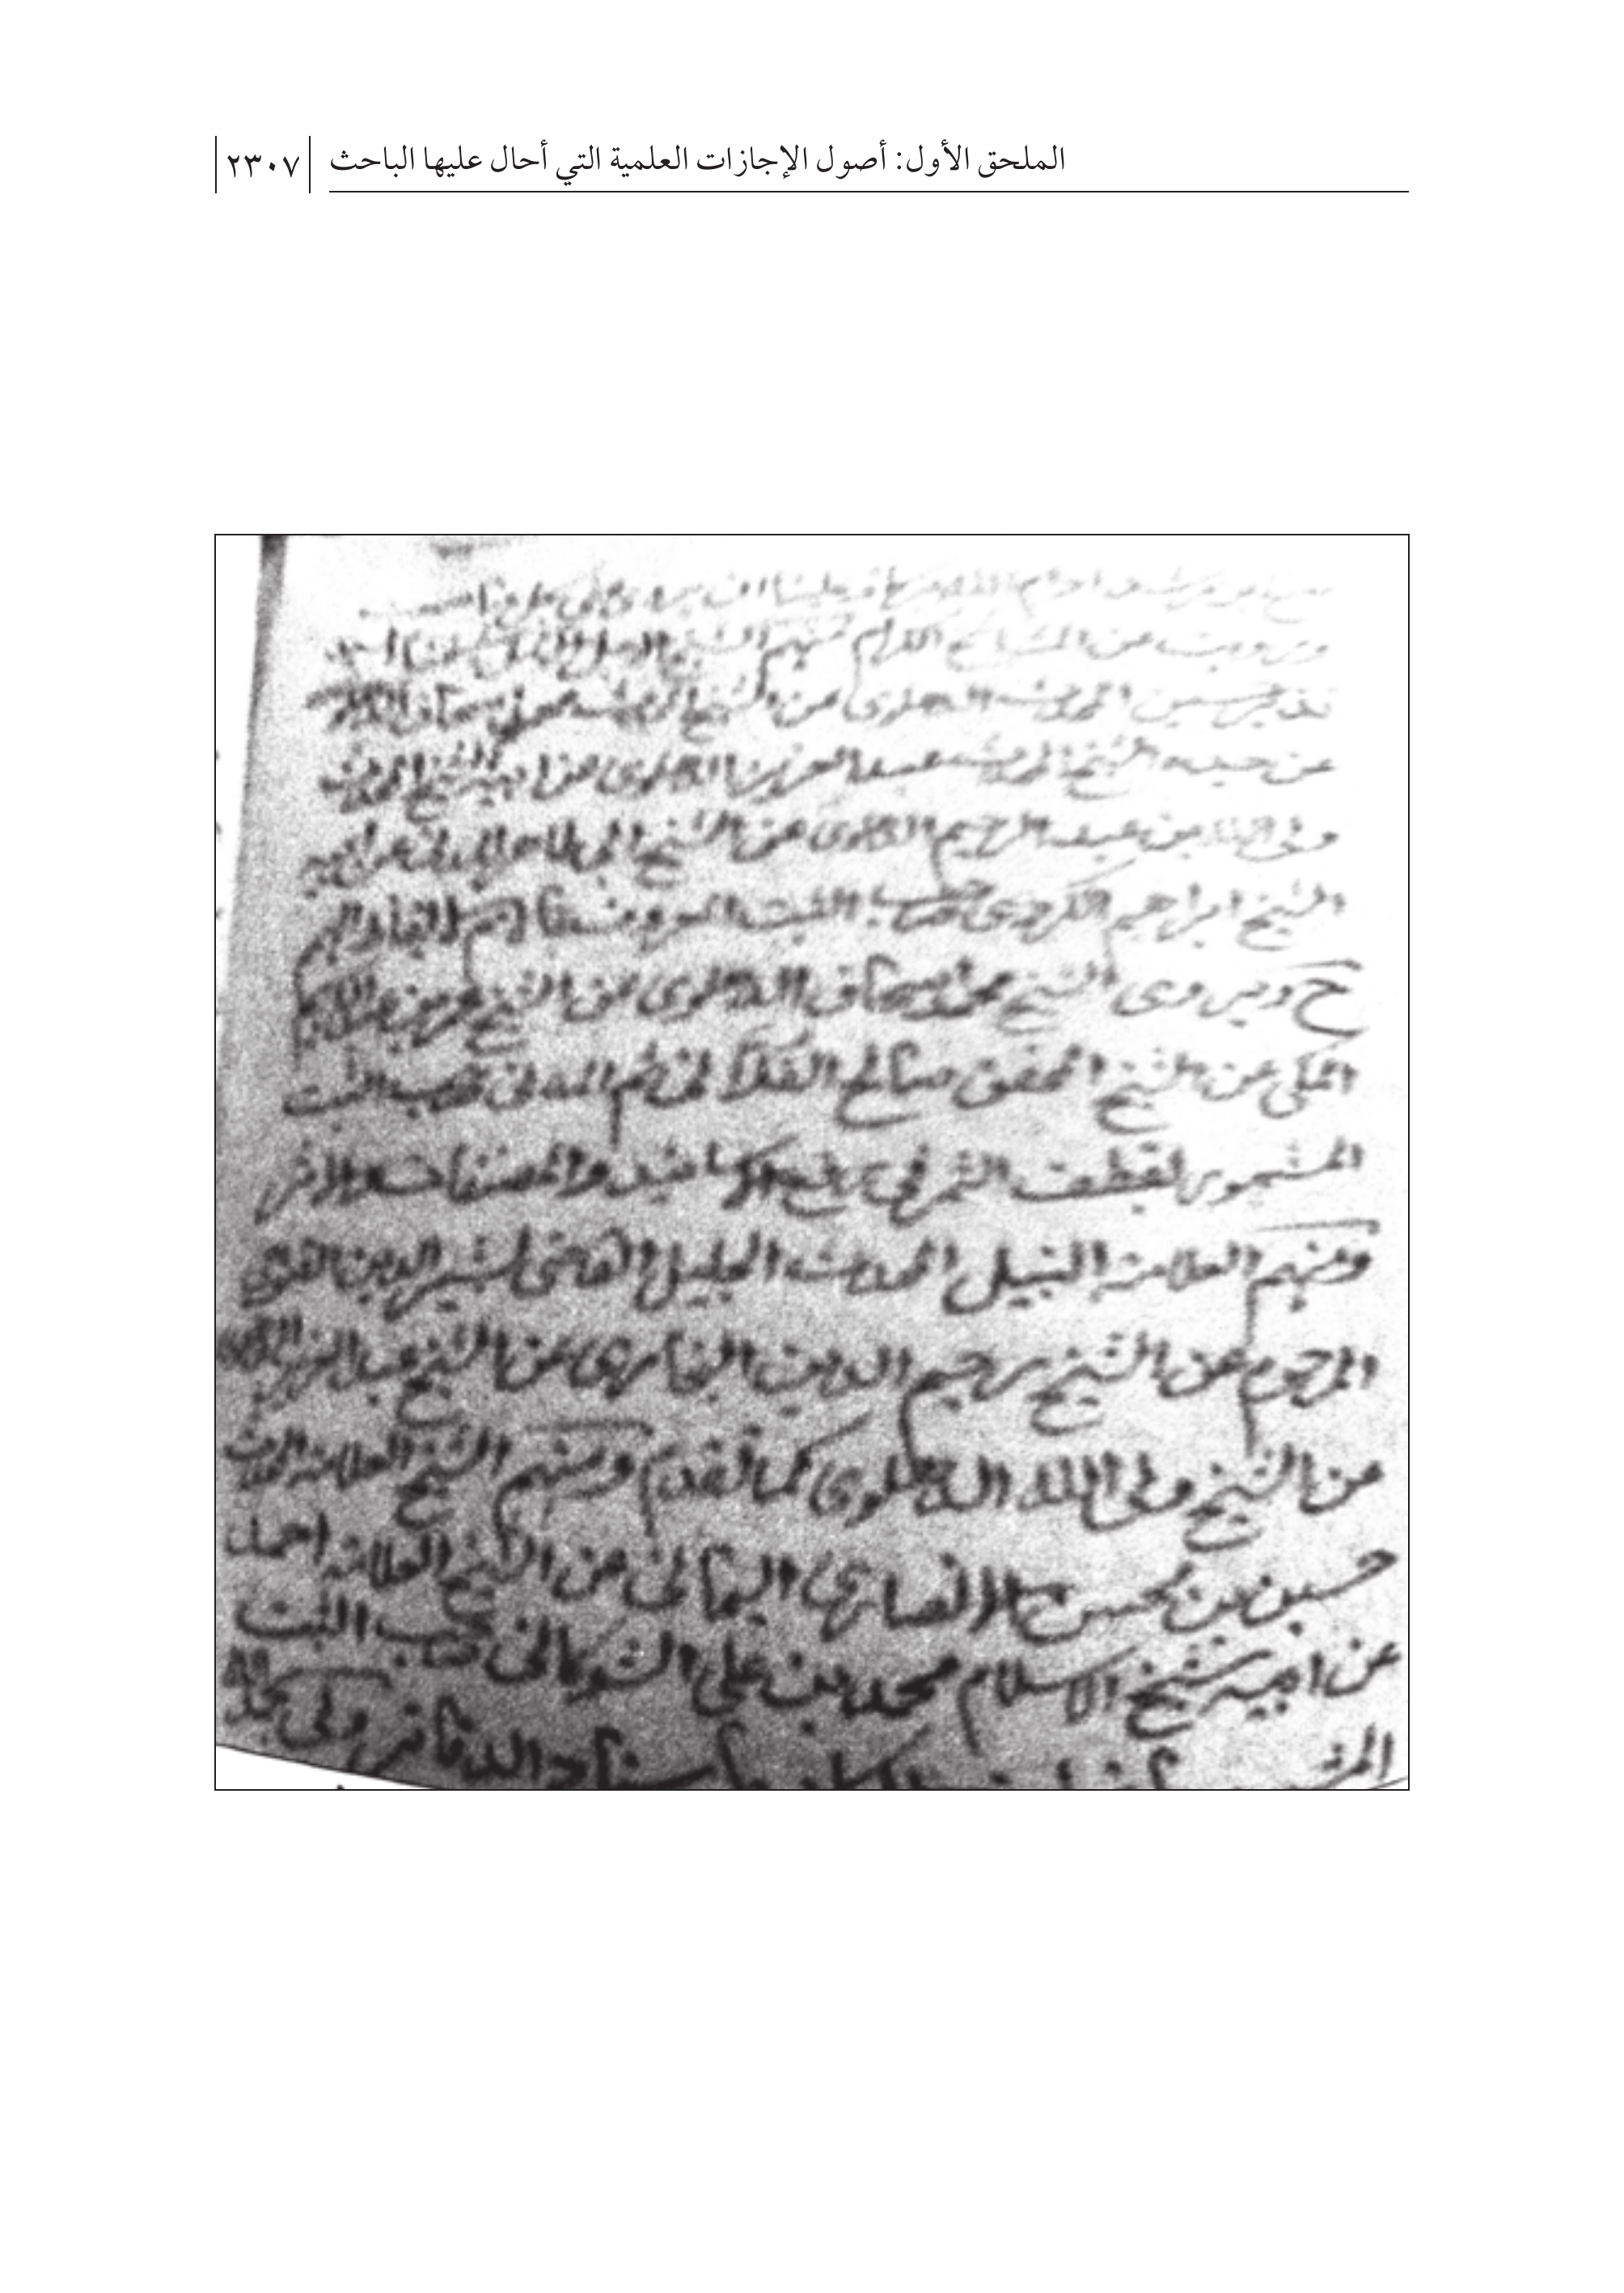 الملحق الأول: أصول الإجازات العلمية التي أحال عليها الباحث ٢٣٠٧
عن المشايخ الكرام منهم الشيخ
نذير حسين المحدث الدهلوى عن الشيخ
عن جده الشيخ المحدث عبد العزيز الدهلوى عن ابيه الشيخ المحدث
ولى الله بن عبد الرحيم الدهلوى عن الشيخ ابى طاهر المدنى عن ابيه
الشيخ ابراهيم الكردى صاحب الثبت المعروف
ح ويروى الشيخ محمد اسحاق الدهلوى عن الشيخ عمر بن عبد الكريم
المكى عن الشيخ المحقق صالح الفلانى ثم المدنى صاحب الثبت
المشهور لقطف الثمر فى رفع اسانيد المصنفات والاثر
ومنهم العلامة النبيل المحدث الجليل القاضى بشير الدين القنوجى
المرحوم عن الشيخ رحيم الدين البخارى عن الشيخ عبد العزيز
عن الشيخ ولى الله الدهلوى كما تقدم ومنهم الشيخ العلامة المحدث
حسين بن محسن الانصارى اليمانى عن الشيخ العلامة احمد
عن ابيه شيخ الاسلام محمد بن على الشوكانى صاحب الثبت
باسناد الدفاتر ولى